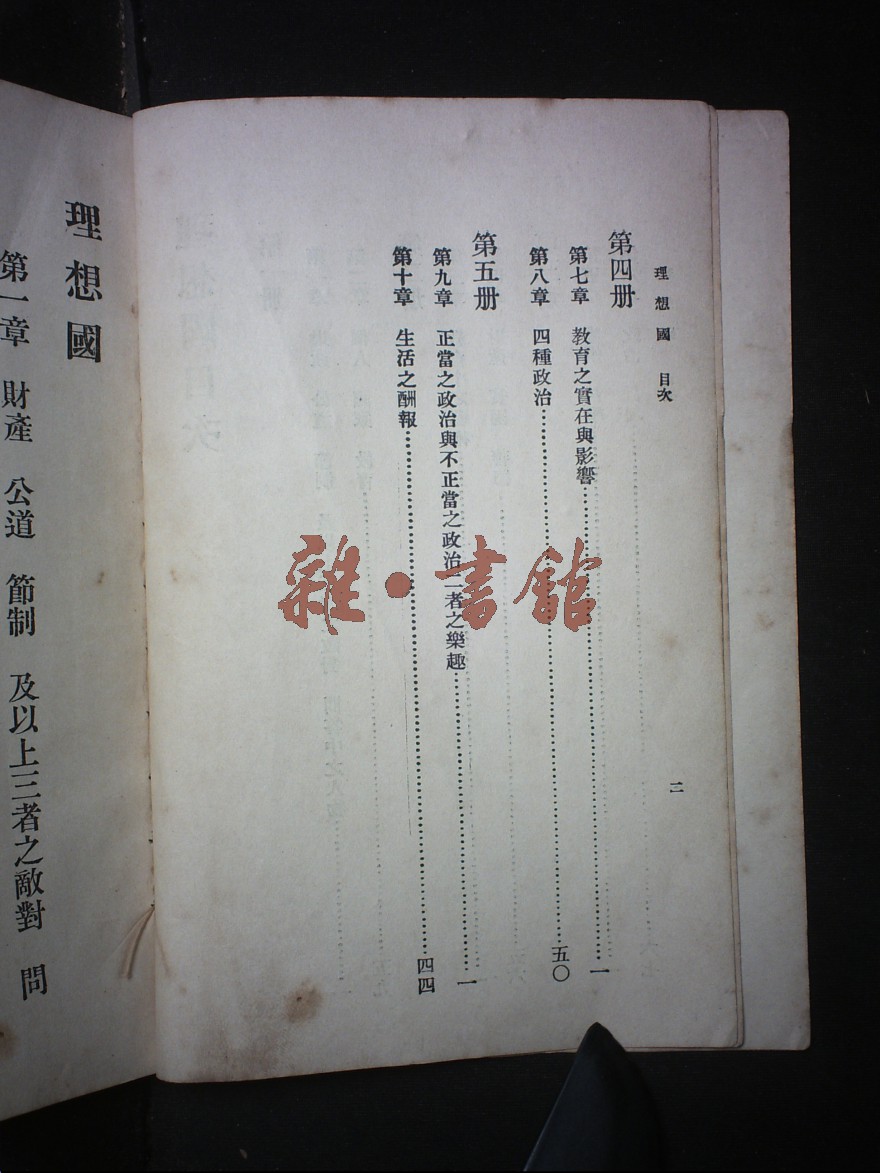 理想國 目次
二
第四册
第七章 教育之實在與影響……一
第八章 四種政治……五〇
第五册
第九章 正當之政治與不正當之政治二者之樂趣……一
第十章 生活之酬報……四四
理想國
第一章 財產 公道 節制 及以上三者之敵對 問
雜·書館